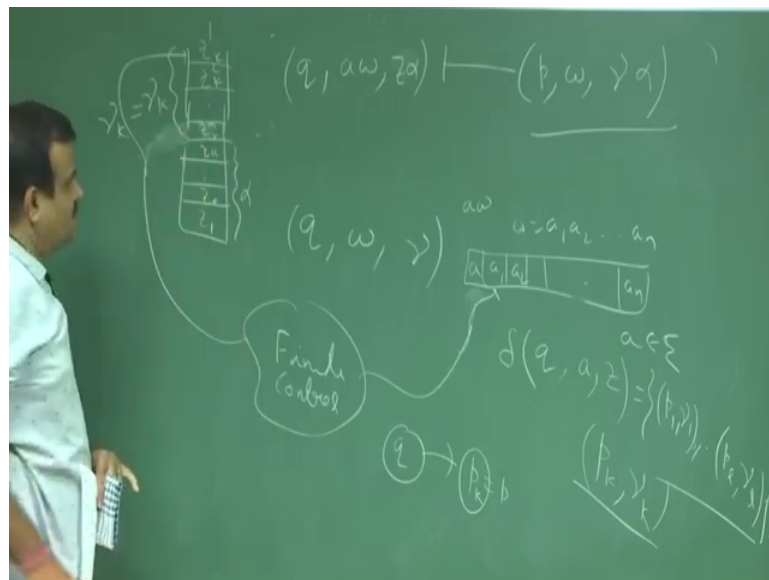 (q, aω, zα) ⊢ (p, ω, γα)
γ_k = γ_k
α
z_2
z_1
(q, ω, γ)
aω
ω = a_1 a_2 ... a_n
a a_1 a_2 . a_n
a ∈ Σ
Finite
Control
δ(q, a, z) = {(p_1, γ_1), .. (p_l, γ_l)}
(p_k, γ_k)
q → p_k = p